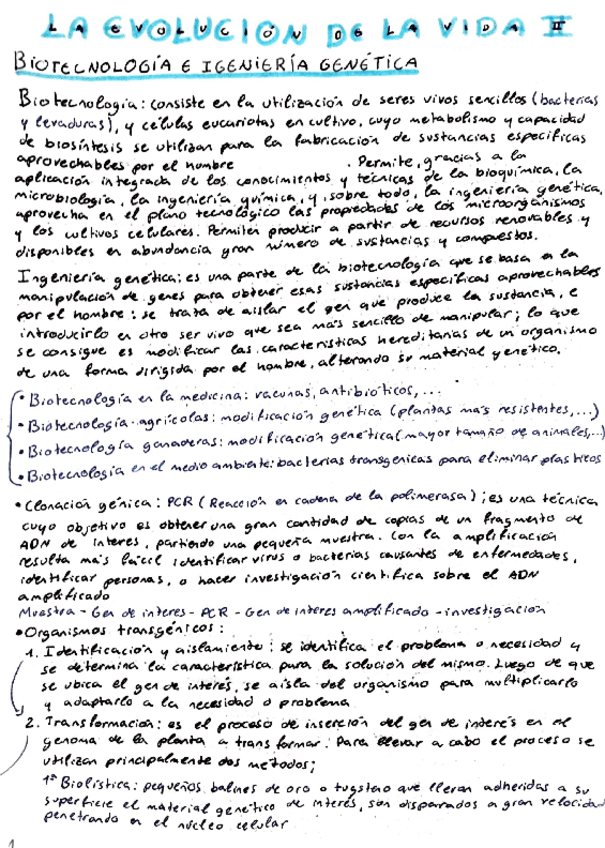 LA EVOLUCIÓN DE LA VIDA II
BIOTECNOLOGÍA E IGENIERÍA GENÉTICA
Biotecnología: consiste en la utilización de seres vivos sencillos (bacterias
y levaduras), y células eucariotas en cultivo, cuyo metabolismo y capacidad
de biosíntesis se utilizan para la fabricación de sustancias específicas
aprovechables por el hombre . Permite, gracias a la
aplicación integrada de los conocimientos y técnicas de la bioquímica, la
microbiología, la ingeniería química, y, sobre todo, la ingeniería genética,
aprovecha en el plano tecnológico las propiedades de los microorganismos
y los cultivos celulares. Permiten producir a partir de recursos renovables y
disponibles en abundancia gran número de sustancias y compuestos.
Ingeniería genética: es una parte de la biotecnología que se basa en la
manipulación de genes para obtener esas sustancias específicas aprovechables
por el hombre: se trata de aislar el gen que produce la sustancia, e
introducirlo en otro ser vivo que sea más sencillo de manipular; lo que
se consigue es modificar las características hereditarias de un organismo
de una forma dirigida por el hombre, alterando su material genético.
• Biotecnología en la medicina: vacunas, antibióticos, ...
• Biotecnología agrícolas: modificación genética (plantas más resistentes, ...)
• Biotecnología ganaderas: modificación genética (mayor tamaño de animales, ...)
• Biotecnología en el medio ambiente: bacterias transgenicas para eliminar plasticos
• Clonación génica: PCR (Reacción en cadena de la polimerasa); es una técnica
cuyo objetivo es obtener una gran cantidad de copias de un fragmento de
ADN de interes, partiendo una pequeña muestra. Con la amplificación
resulta más fácil identificar virus o bacterias causantes de enfermedades,
identificar personas, o hacer investigación científica sobre el ADN
amplificado
Muestra - Gen de interes - PCR - Gen de interes amplificado - investigación
• Organismos transgénicos:
1. Identificación y aislamiento: se identifica el problema o necesidad y
se determina la característica para la solución del mismo. Luego de que
se ubica el gen de interés, se aísla del organismo para multiplicarlo
y adaptarlo a la necesidad o problema
2. Transformación: es el proceso de inserción del gen de interés en el
genoma de la planta a transformar. Para llevar a cabo el proceso se
utilizan principalmente dos metodos;
1º Biolística: pequeños balines de oro o tugsteno que llevan adheridas a su
superficie el material genético de interés, son disparados a gran velocidad
penetrando en el núcleo celular
1